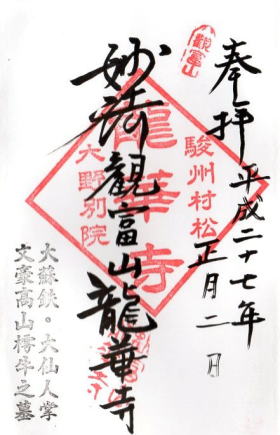 觀富山
奉拝 平成二十七年
正月二日
駿州村松
龍華寺
大野別院
妙 觀富山龍華寺
大蘇鉄。大仙人掌
文豪高山樗牛之墓